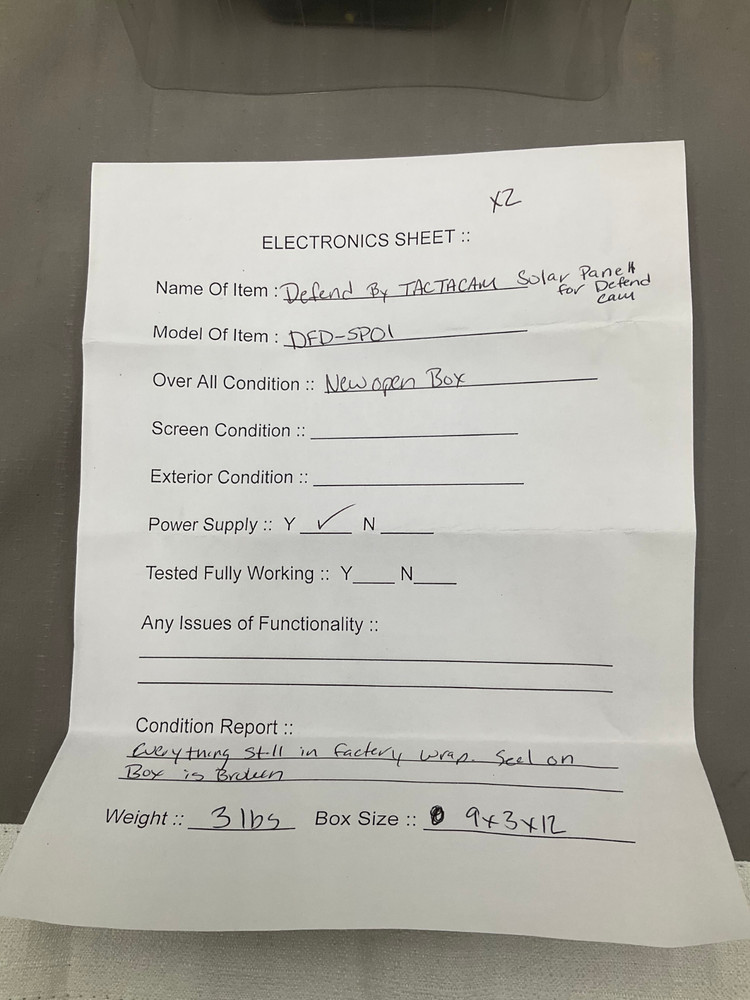 x2
ELECTRONICS SHEET ::
Name Of Item : Defend By TACTACAM Solar Panel
for Defend
cam
Model Of Item : DFD-SP01
Over All Condition :: New open Box
Screen Condition ::
Exterior Condition ::
Power Supply :: Y ✓ N
Tested Fully Working :: Y N
Any Issues of Functionality ::
Condition Report ::
Everything still in factery wrap. Seel on
Box is Broken
Weight :: 3 lbs Box Size :: 9x3x12